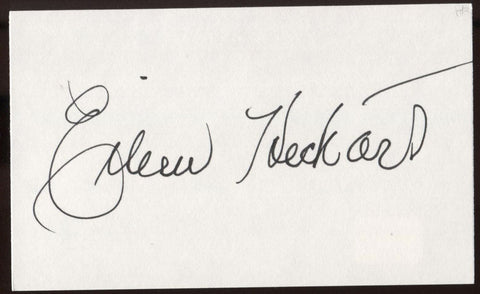 Eileen Heckart